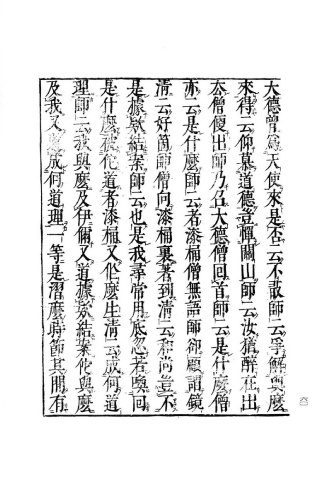 大德僧爲天使來是否云不敢師云爭解與麼
來得云仰慕道德豈憚關山師云汝猶醉在出
去僧便出師乃召大德僧回首師云是什麼僧
亦云是什麼師云者漆桶僧無語師卻顧謂鏡
清云好箇師僧向漆桶裏著到清云和尚豈不
是據欵結案師云也是我尋常用底忽若喚回
是什麼被他道者漆桶又作麼生清云成何道
理師云我與麼及伊儞又道據欵結案他與麼
及我又道成何道理一等是麼時節其間有